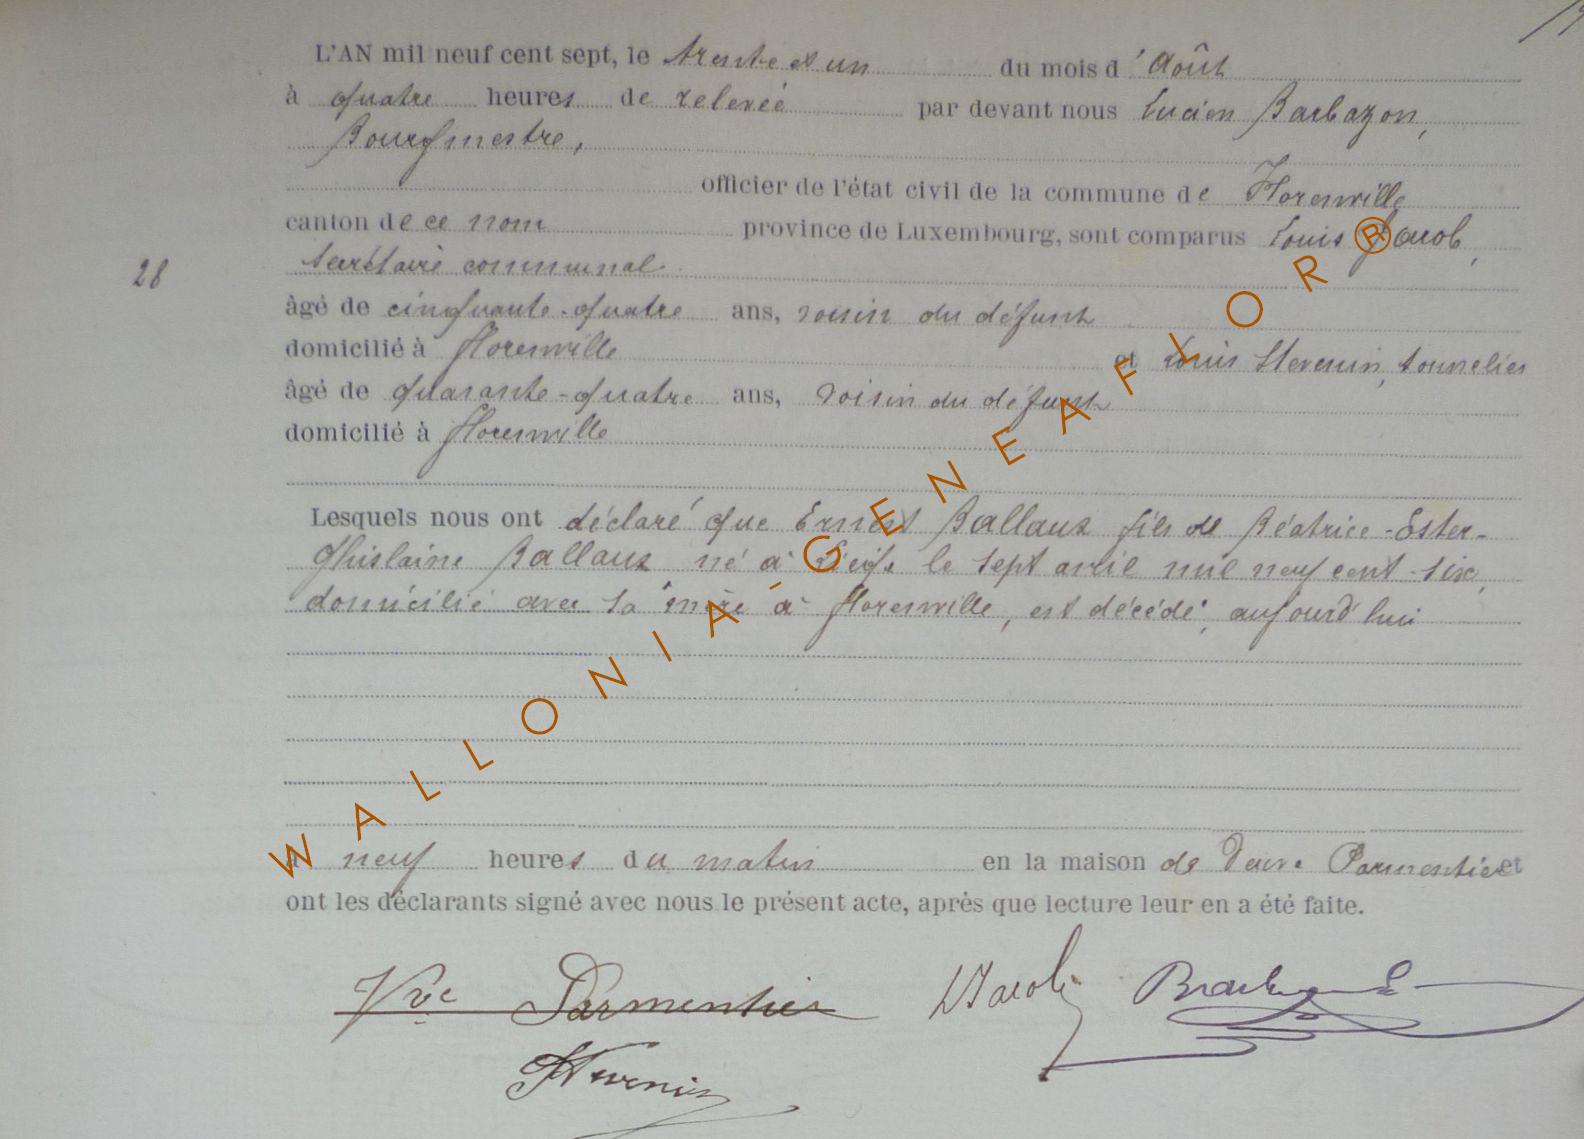 L'AN mil neuf cent sept, le trente et un du mois d'Août
à quatre heures de relevée par devant nous Lucien Barbazon,
Bourgmestre,
officier de l'état civil de la commune de Florenville
canton de ce nom province de Luxembourg, sont comparus Louis Jacob,
Secrétaire communal
28
âgé de cinquante-quatre ans, voisin du défunt
domicilié à Florenville et Louis tonnelier
âgé de quarante-quatre ans, voisin du défunt
domicilié à Florenville
Lesquels nous ont déclaré que Ernest Ballaux fils de Béatrice-Ester-
Ghislaine Ballaux né à Liège le sept avril mil neuf cent six,
domicilié avec sa mère à Florenville, est décédé, aujourd'hui
à neuf heures du matin en la maison de veuve Parmentier et
ont les déclarants signé avec nous le présent acte, après que lecture leur en a été faite.
Vve Parmentier LJacob
WALLONIA-GENEAFLOR®